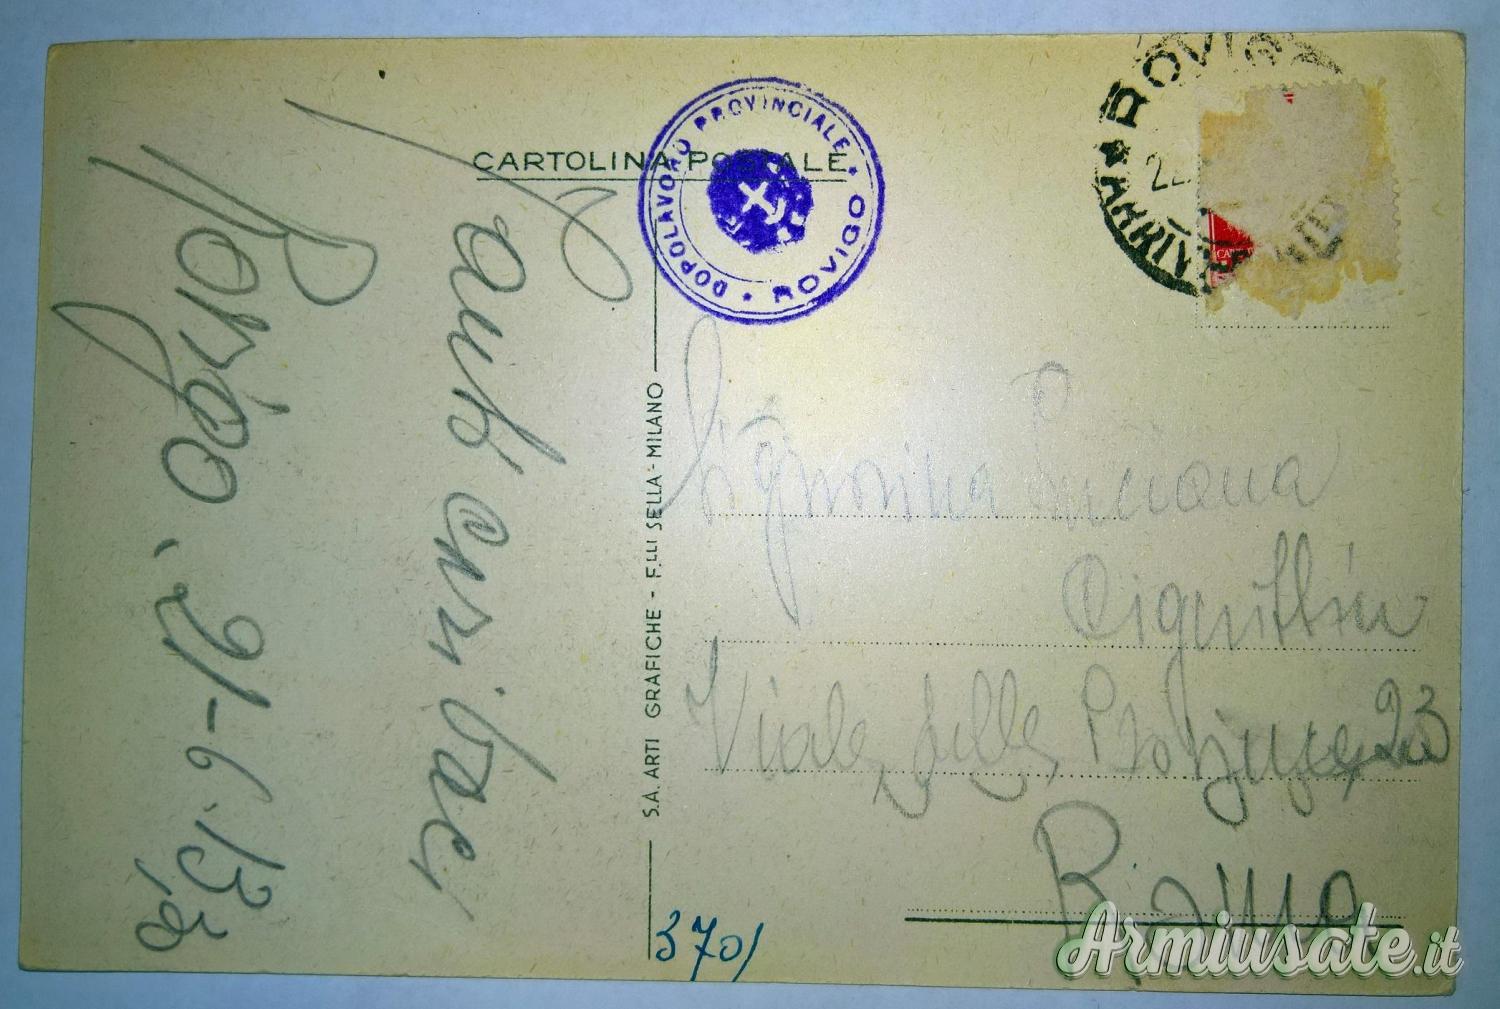 CARTOLINA POSTALE
DOPOLAVORO PROVINCIALE
ROVIGO
ROVIG
22
ARRIVI
Tanti cari baci
Rovigo, 21-6-
S.A. ARTI GRAFICHE - F.LLI SELLA - MILANO
Signorina Luciana
Viale delle Province 23
Roma
3701
Armiusate.it